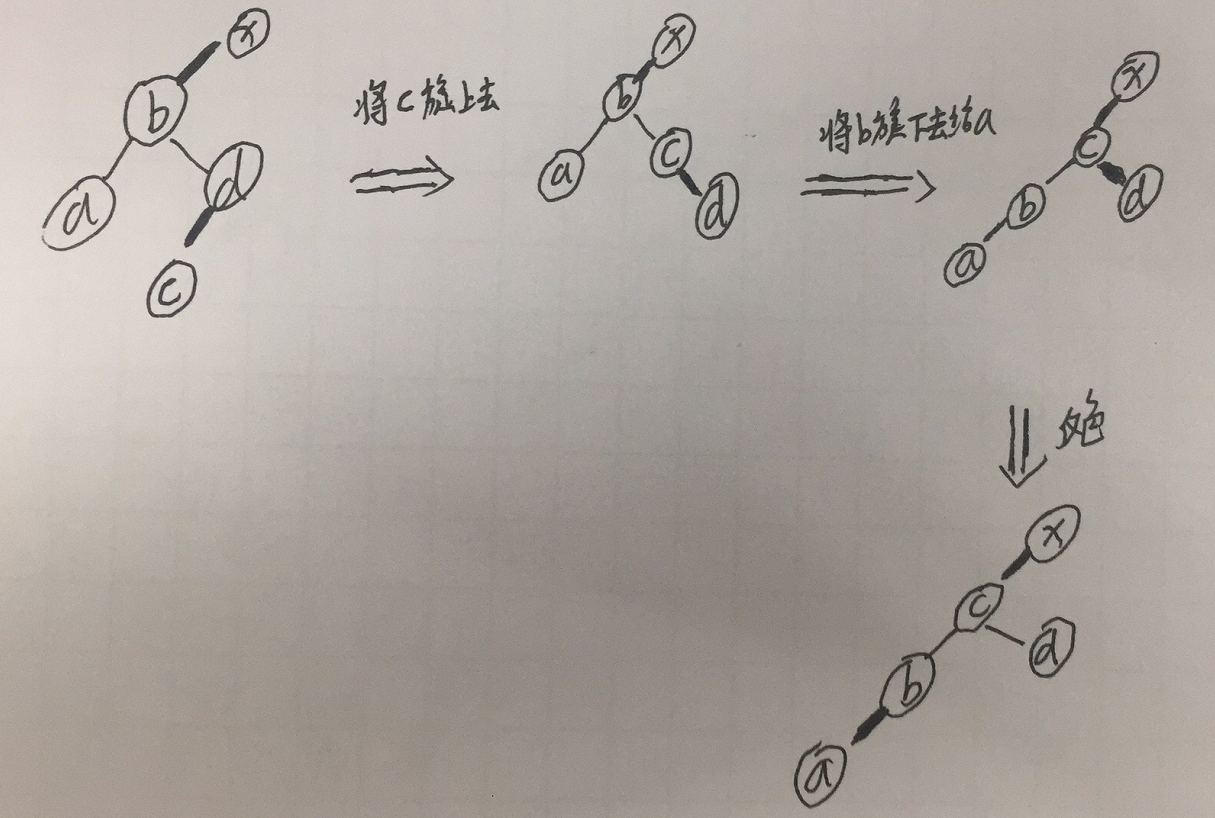 x
b
a
d
c
将c旋上去
x
b
a
c
d
将b旋下去给a
x
c
b
d
a
变色
x
c
d
b
a